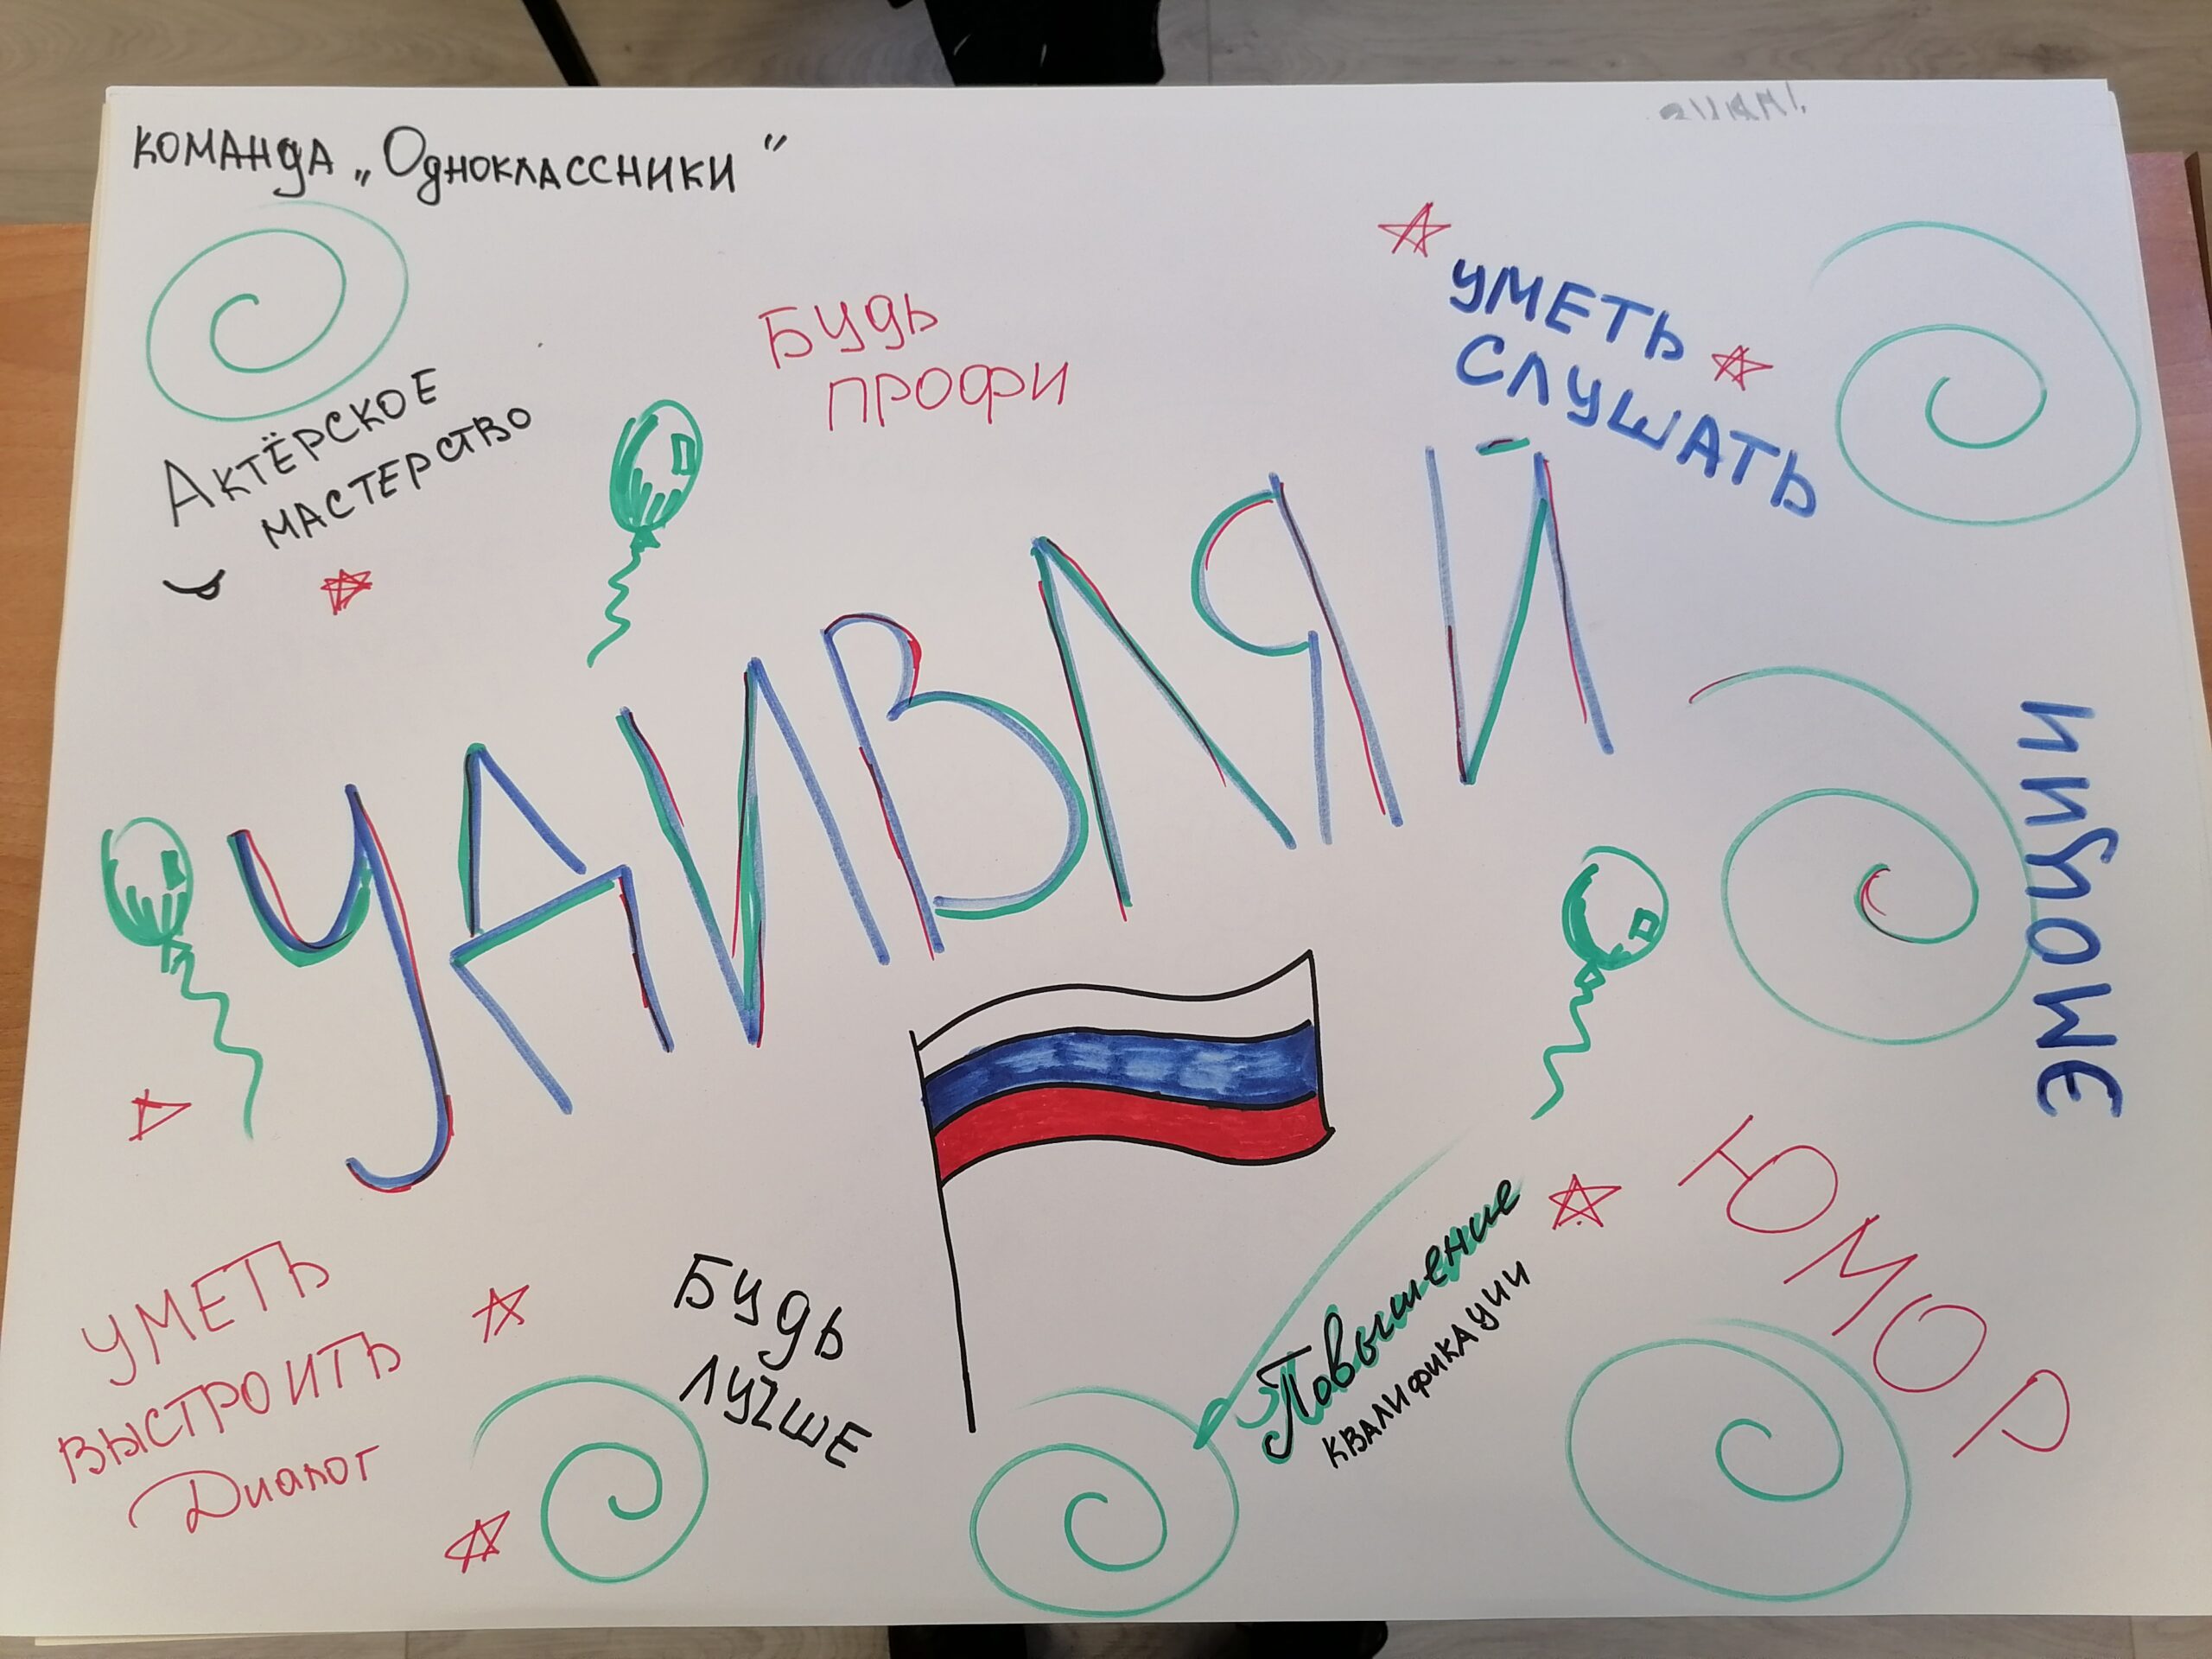 КОМАНДА „Одноклассники"
Актёрское
мастерство
Будь
профи
УМЕТЬ
СЛУШАТЬ
УДИВЛЯЙ
УМЕТЬ
ВЫСТРОИТЬ
Диалог
Будь
лучше
Повышение
квалификации
ЮМОР